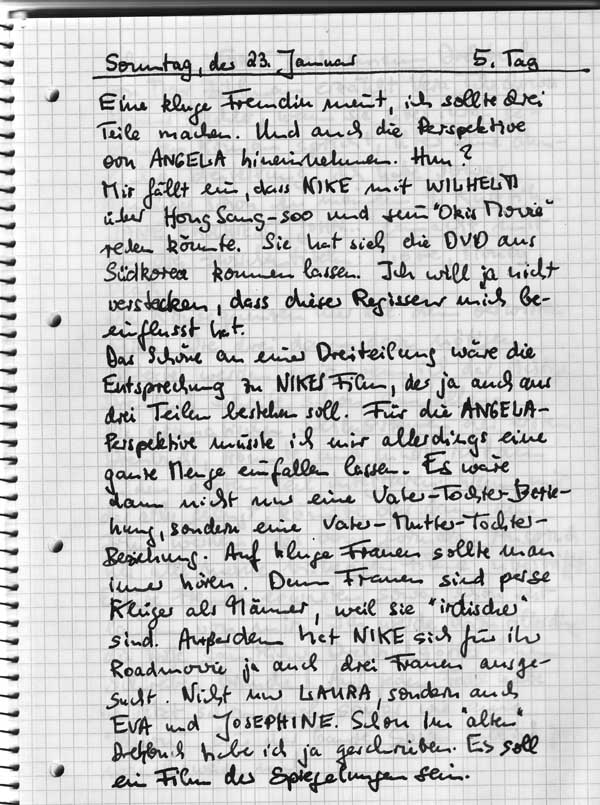 Sonntag, des 23. Januar 5. Tag
Eine kluge Freundin meint, ich sollte drei
Teile machen. Und auch die Perspektive
von ANGELA hineinnehmen. Hm?
Mir fällt ein, dass NIKE mit WILHELM
über Hong Sang-soo und sein "Okis Movie"
reden könnte. Sie hat sich die DVD aus
Südkorea kommen lassen. Ich will ja nicht
verstecken, dass dieser Regisseur mich be-
einflusst hat.
Das Schöne an einer Dreiteilung wäre die
Entsprechung zu NIKES Film, der ja auch aus
drei Teilen bestehen soll. Für die ANGELA-
Perspektive müsste ich mir allerdings eine
ganze Menge einfallen lassen. Es wäre
dann nicht nur eine Vater-Tochter-Bezie-
hung, sondern eine Vater-Mutter-Tochter-
Beziehung. Auf kluge Frauen sollte man
immer hören. Denn Frauen sind perse
klüger als Männer, weil sie "irdischer"
sind. Außerdem hat NIKE sich für ihr
Roadmovie ja auch drei Frauen ausge-
sucht. Nicht nur LAURA, sondern auch
EVA und JOSEPHINE. Schon im "alten"
Drehbuch habe ich ja geschrieben. Es soll
ein Film der Spiegelungen sein.